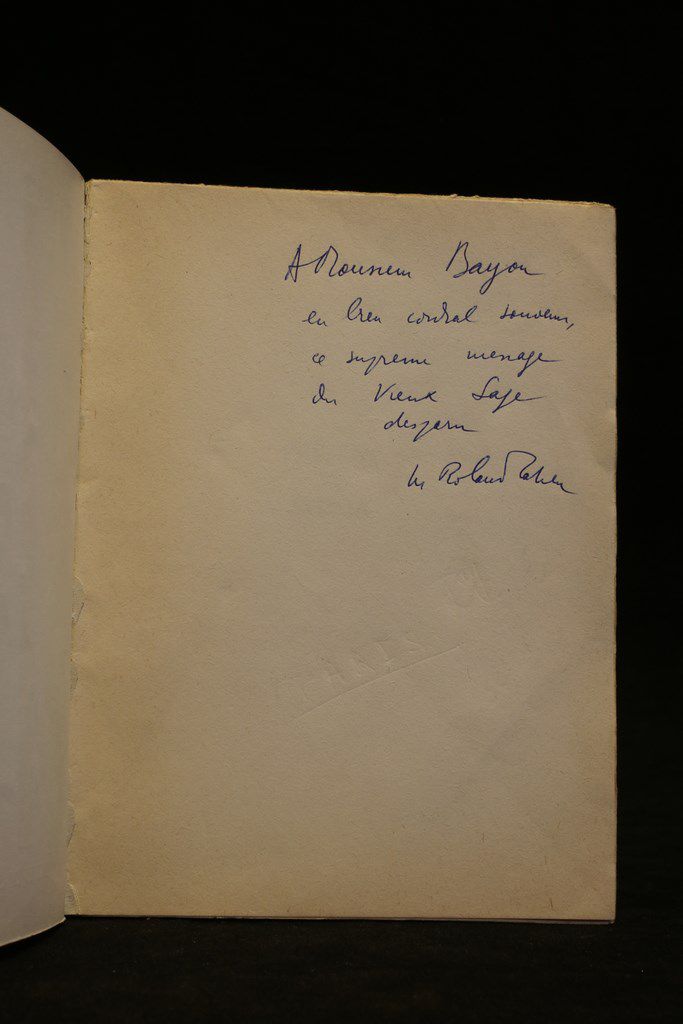 A Monsieur Bayon
en bien cordial souvenir,
ce supreme message
du Vieux Sage
disparu
M Roland